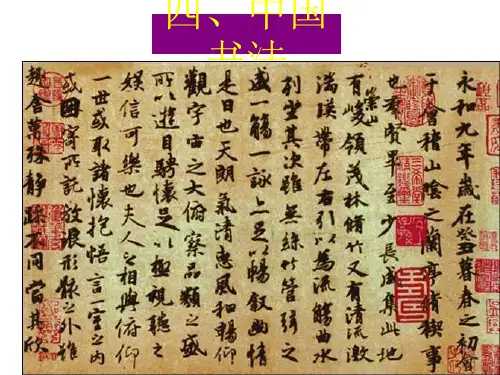 四、中国
书法
永和九年歲在癸丑暮春之初會
于會稽山陰之蘭亭脩禊事
也群賢畢至少長咸集此地
有崇山峻領茂林脩竹又有清流激
湍暎帶左右引以為流觴曲水
列坐其次雖無絲竹管弦之
盛一觴一詠亦足以暢敘幽情
是日也天朗氣清惠風和暢仰
觀宇宙之大俯察品類之盛
所以遊目騁懷足以極視聽之
娛信可樂也夫人之相與俯仰
一世或取諸懷抱悟言一室之內
或因寄所託放浪形骸之外雖
趣舍萬殊靜躁不同當其欣